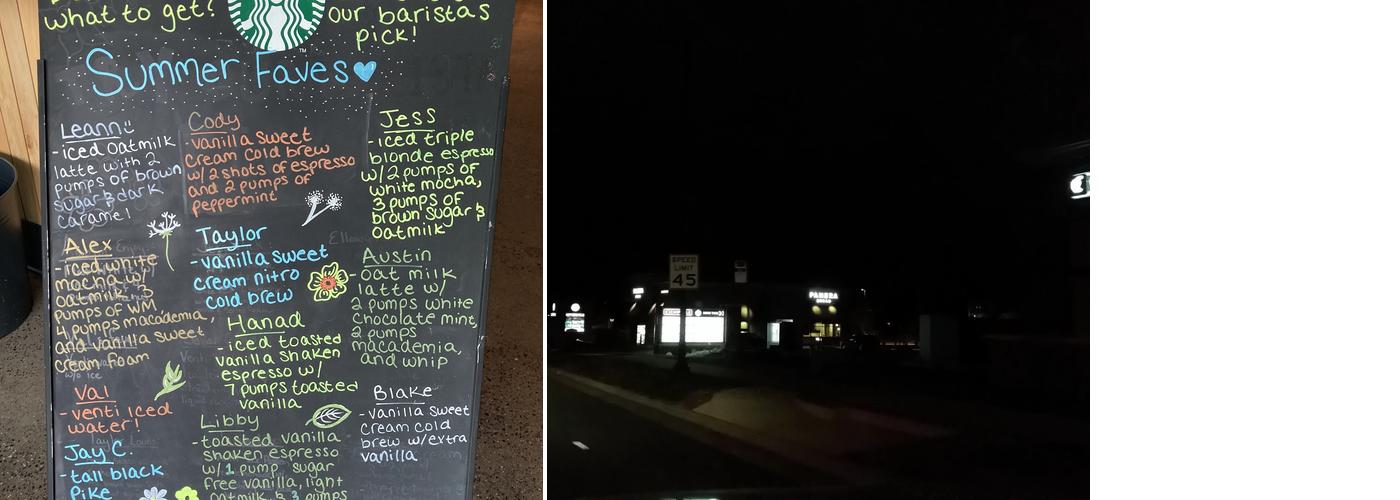 what to get?
our baristas
pick!
Summer Faves
Leann
- iced oatmilk
latte with 2
pumps of brown
sugar & dark
caramel
Cody
- vanilla sweet
cream cold brew
w/ 2 shots of espresso
and 2 pumps of
peppermint
Jess
- iced triple
blonde espresso
w/ 2 pumps of
white mocha,
3 pumps of
brown sugar &
oatmilk
Alex
- iced white
mocha w/
oatmilk, 3
pumps of WM,
4 pumps macadamia,
and vanilla sweet
cream foam
Taylor
- vanilla sweet
cream nitro
cold brew
Austin
- oat milk
latte w/
2 pumps white
chocolate mint,
2 pumps
macademia,
and whip
Hanad
- iced toasted
vanilla shaken
espresso w/
7 pumps toasted
vanilla
Val
- venti iced
water!
Blake
- vanilla sweet
cream cold
brew w/extra
vanilla
Libby
- toasted vanilla
shaken espresso
w/ 1 pump sugar
free vanilla, light
oatmilk, & 3 pumps
Jay C.
- tall black
Pike
SPEED
LIMIT
45
PANERA
BREAD